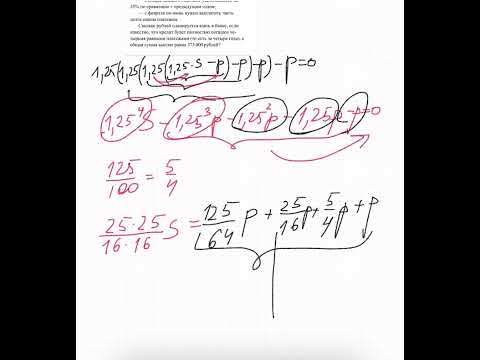 25% по сравнению с предыдущим годом;
— с февраля по июнь нужно выплатить часть
Сколько рублей планируется взять в банке, если
известно, что кредит будет полностью погашен че-
тырьмя равными платежами (то есть за четыре года), а
общая сумма выплат равна 375 000 рублей?
1,25(1,25(1,25(1,25·S−p)−p)−p)−p=0
1,25⁴S − 1,25³p − 1,25²p − 1,25p − p=0
125/100 = 5/4
25·25/16·16 S = 125/64 p + 25/16 p + 5/4 p + p